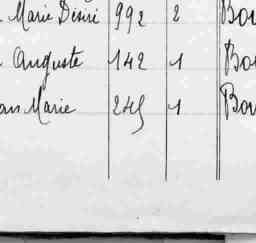 Marie Désiré 992 2 Bou
Auguste 142 1 Bou
an Marie 245 1 Bou